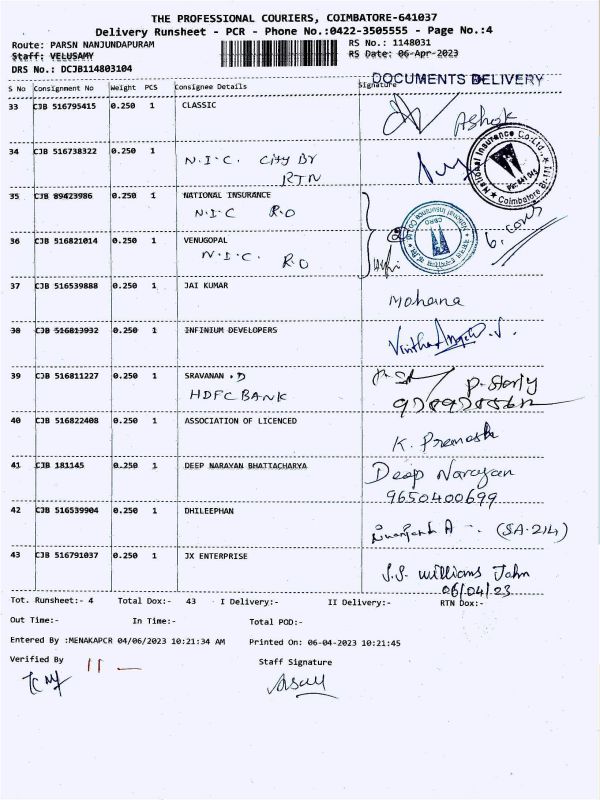 THE PROFESSIONAL COURIERS, COIMBATORE-641037
Delivery Runsheet - PCR - Phone No.:0422-3505555 - Page No.:4
Route: PARSN NANJUNDAPURAM RS No.: 1148031
Staff: VELUSAMY RS Date: 06-Apr-2023
DRS No.: DCJB114803104 DOCUMENTS DELIVERY
S No Consignment No Weight PCS Consignee Details Signature
33 CJB 516795415 0.250 1 CLASSIC Ashok
34 CJB 516738322 0.250 1
N.I.C. City Br
RTN
National Insurance Co.Ltd.,
Coimbatore
35 CJB 89423986 0.250 1 NATIONAL INSURANCE
N.I.C R.O
36 CJB 516821014 0.250 1 VENUGOPAL
N.I.C. R.O
37 CJB 516539888 0.250 1 JAI KUMAR
Mohana
38 CJB 516813932 0.250 1 INFINIUM DEVELOPERS
39 CJB 516811227 0.250 1 SRAVANAN . D
HDFC BANK
40 CJB 516822408 0.250 1 ASSOCIATION OF LICENCED
41 CJB 181145 0.250 1 DEEP NARAYAN BHATTACHARYA Deep Narayan
9650400699
42 CJB 516539904 0.250 1 DHILEEPHAN
(SA-214)
43 CJB 516791037 0.250 1 JX ENTERPRISE
J.S. Williams John
06/04/23
Tot. Runsheet:- 4 Total Dox:- 43 I Delivery:- II Delivery:- RTN Dox:-
Out Time:- In Time:- Total POD:-
Entered By :MENAKAPCR 04/06/2023 10:21:34 AM Printed On: 06-04-2023 10:21:45
Verified By Staff Signature